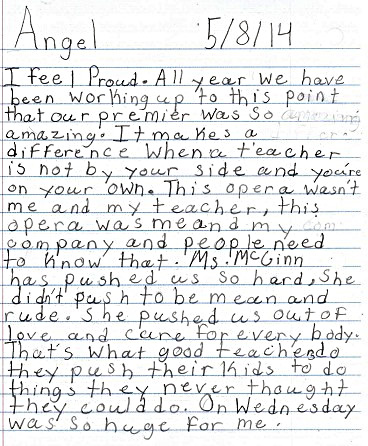 Angel 5/8/14
I feel Proud. All year we have
been working up to this point
that our premier was so
amazing. It makes a
difference when a teacher
is not by your side and you're
on your own. This opera wasn't
me and my teacher, this
opera was me and my com
company and people need
to know that. Ms. McGinn
has pushed us so hard, she
didn't push to be mean and
rude. She pushed us out of
love and care for every body.
That's what good teachers do
they push their kids to do
things they never thought
they could do. On Wednesday
was so huge for me.